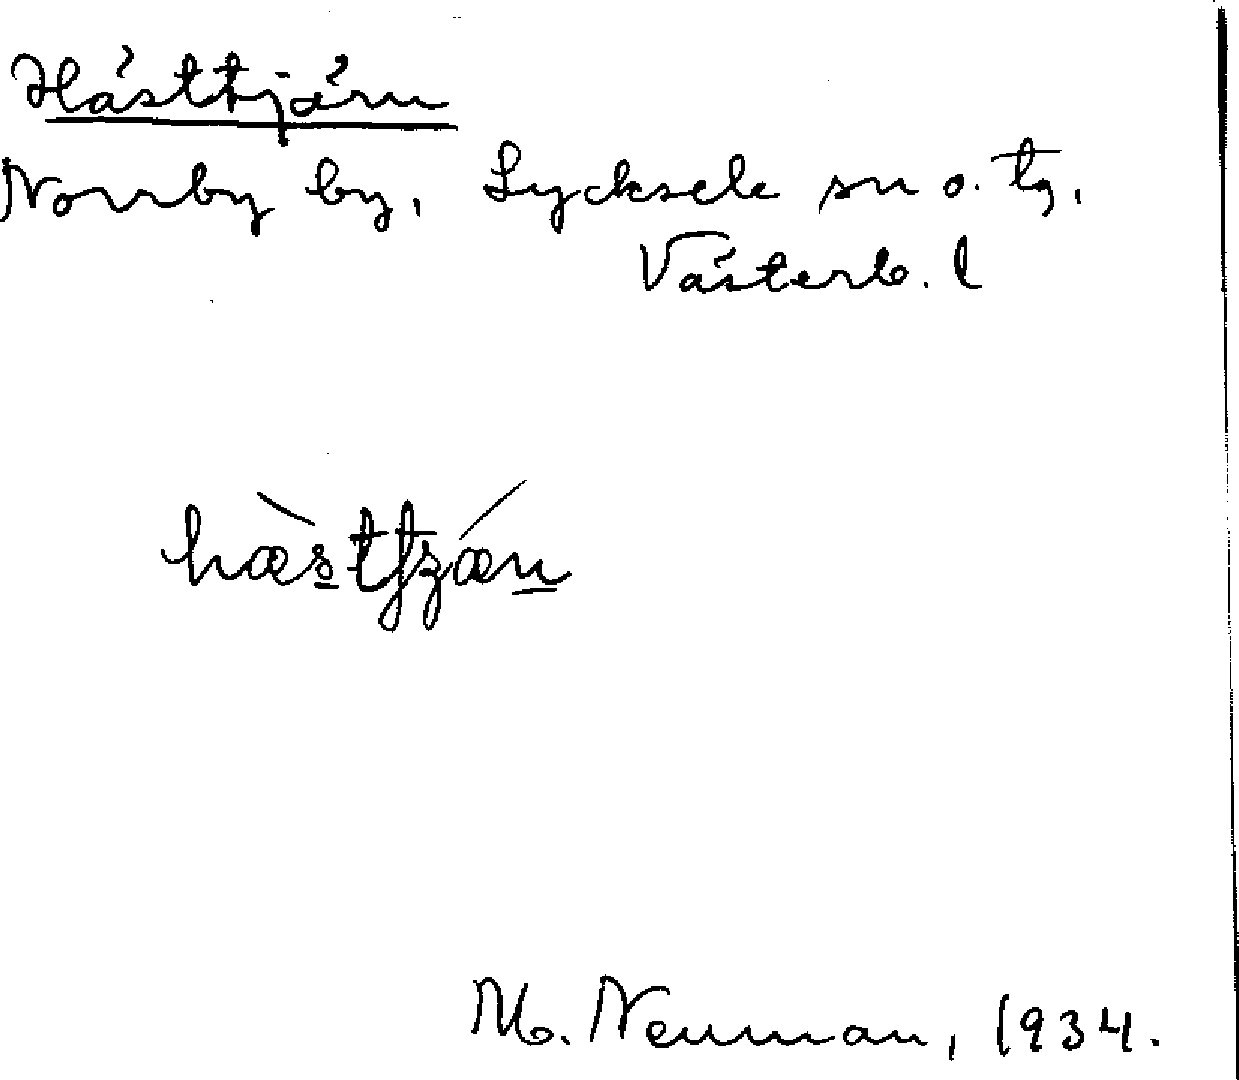 Hästtjärn
Norrby by, Lycksele sn o. tg,
Västerb. l
hæstʃʒæn
M. Neuman, 1934.